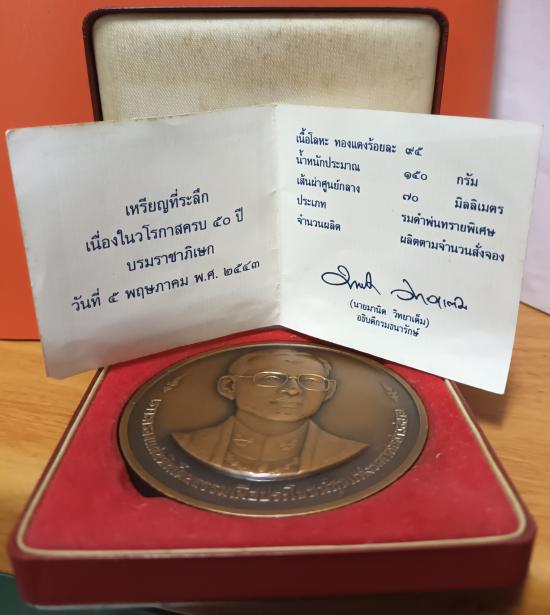 เหรียญที่ระลึก
เนื่องในวโรกาสครบ ๕๐ ปี
บรมราชาภิเษก
วันที่ ๕ พฤษภาคม พ.ศ. ๒๕๔๓
เนื้อโลหะ ทองแดงร้อยละ ๙๕
น้ำหนักประมาณ ๑๕๐ กรัม
เส้นผ่าศูนย์กลาง ๗๐ มิลลิเมตร
ประเภท รมดำพ่นทรายพิเศษ
จำนวนผลิต ผลิตตามจำนวนสั่งจอง
(นายมานิต วิทยาเต็ม)
อธิบดีกรมธนารักษ์